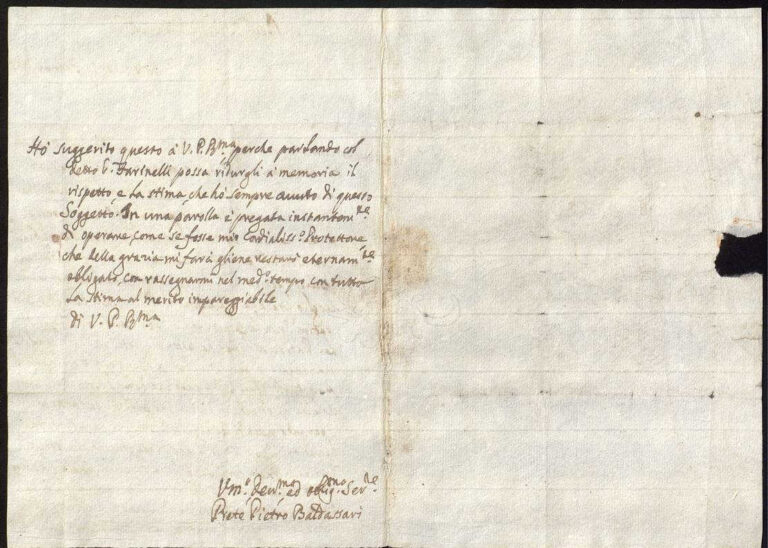 Hò suggerito questo à V. P. Rma perche parlando col
detto Sr. Farinelli possa ridurgli à memoria il
rispetto, e la stima, che hò sempre avuto di questo
Soggetto. In una parolla è pregata instantemte
di operare, come se fosse mio Cordialisso Protettore,
che della grazia mi farà gliene restarò eternamte
obligato, con rassegnarmi nel medo tempo con tutta
la stima al merito impareggiabile
di V. P. Rma
Umo devmo ed obligmo Serre
Prete Pietro Baldassari